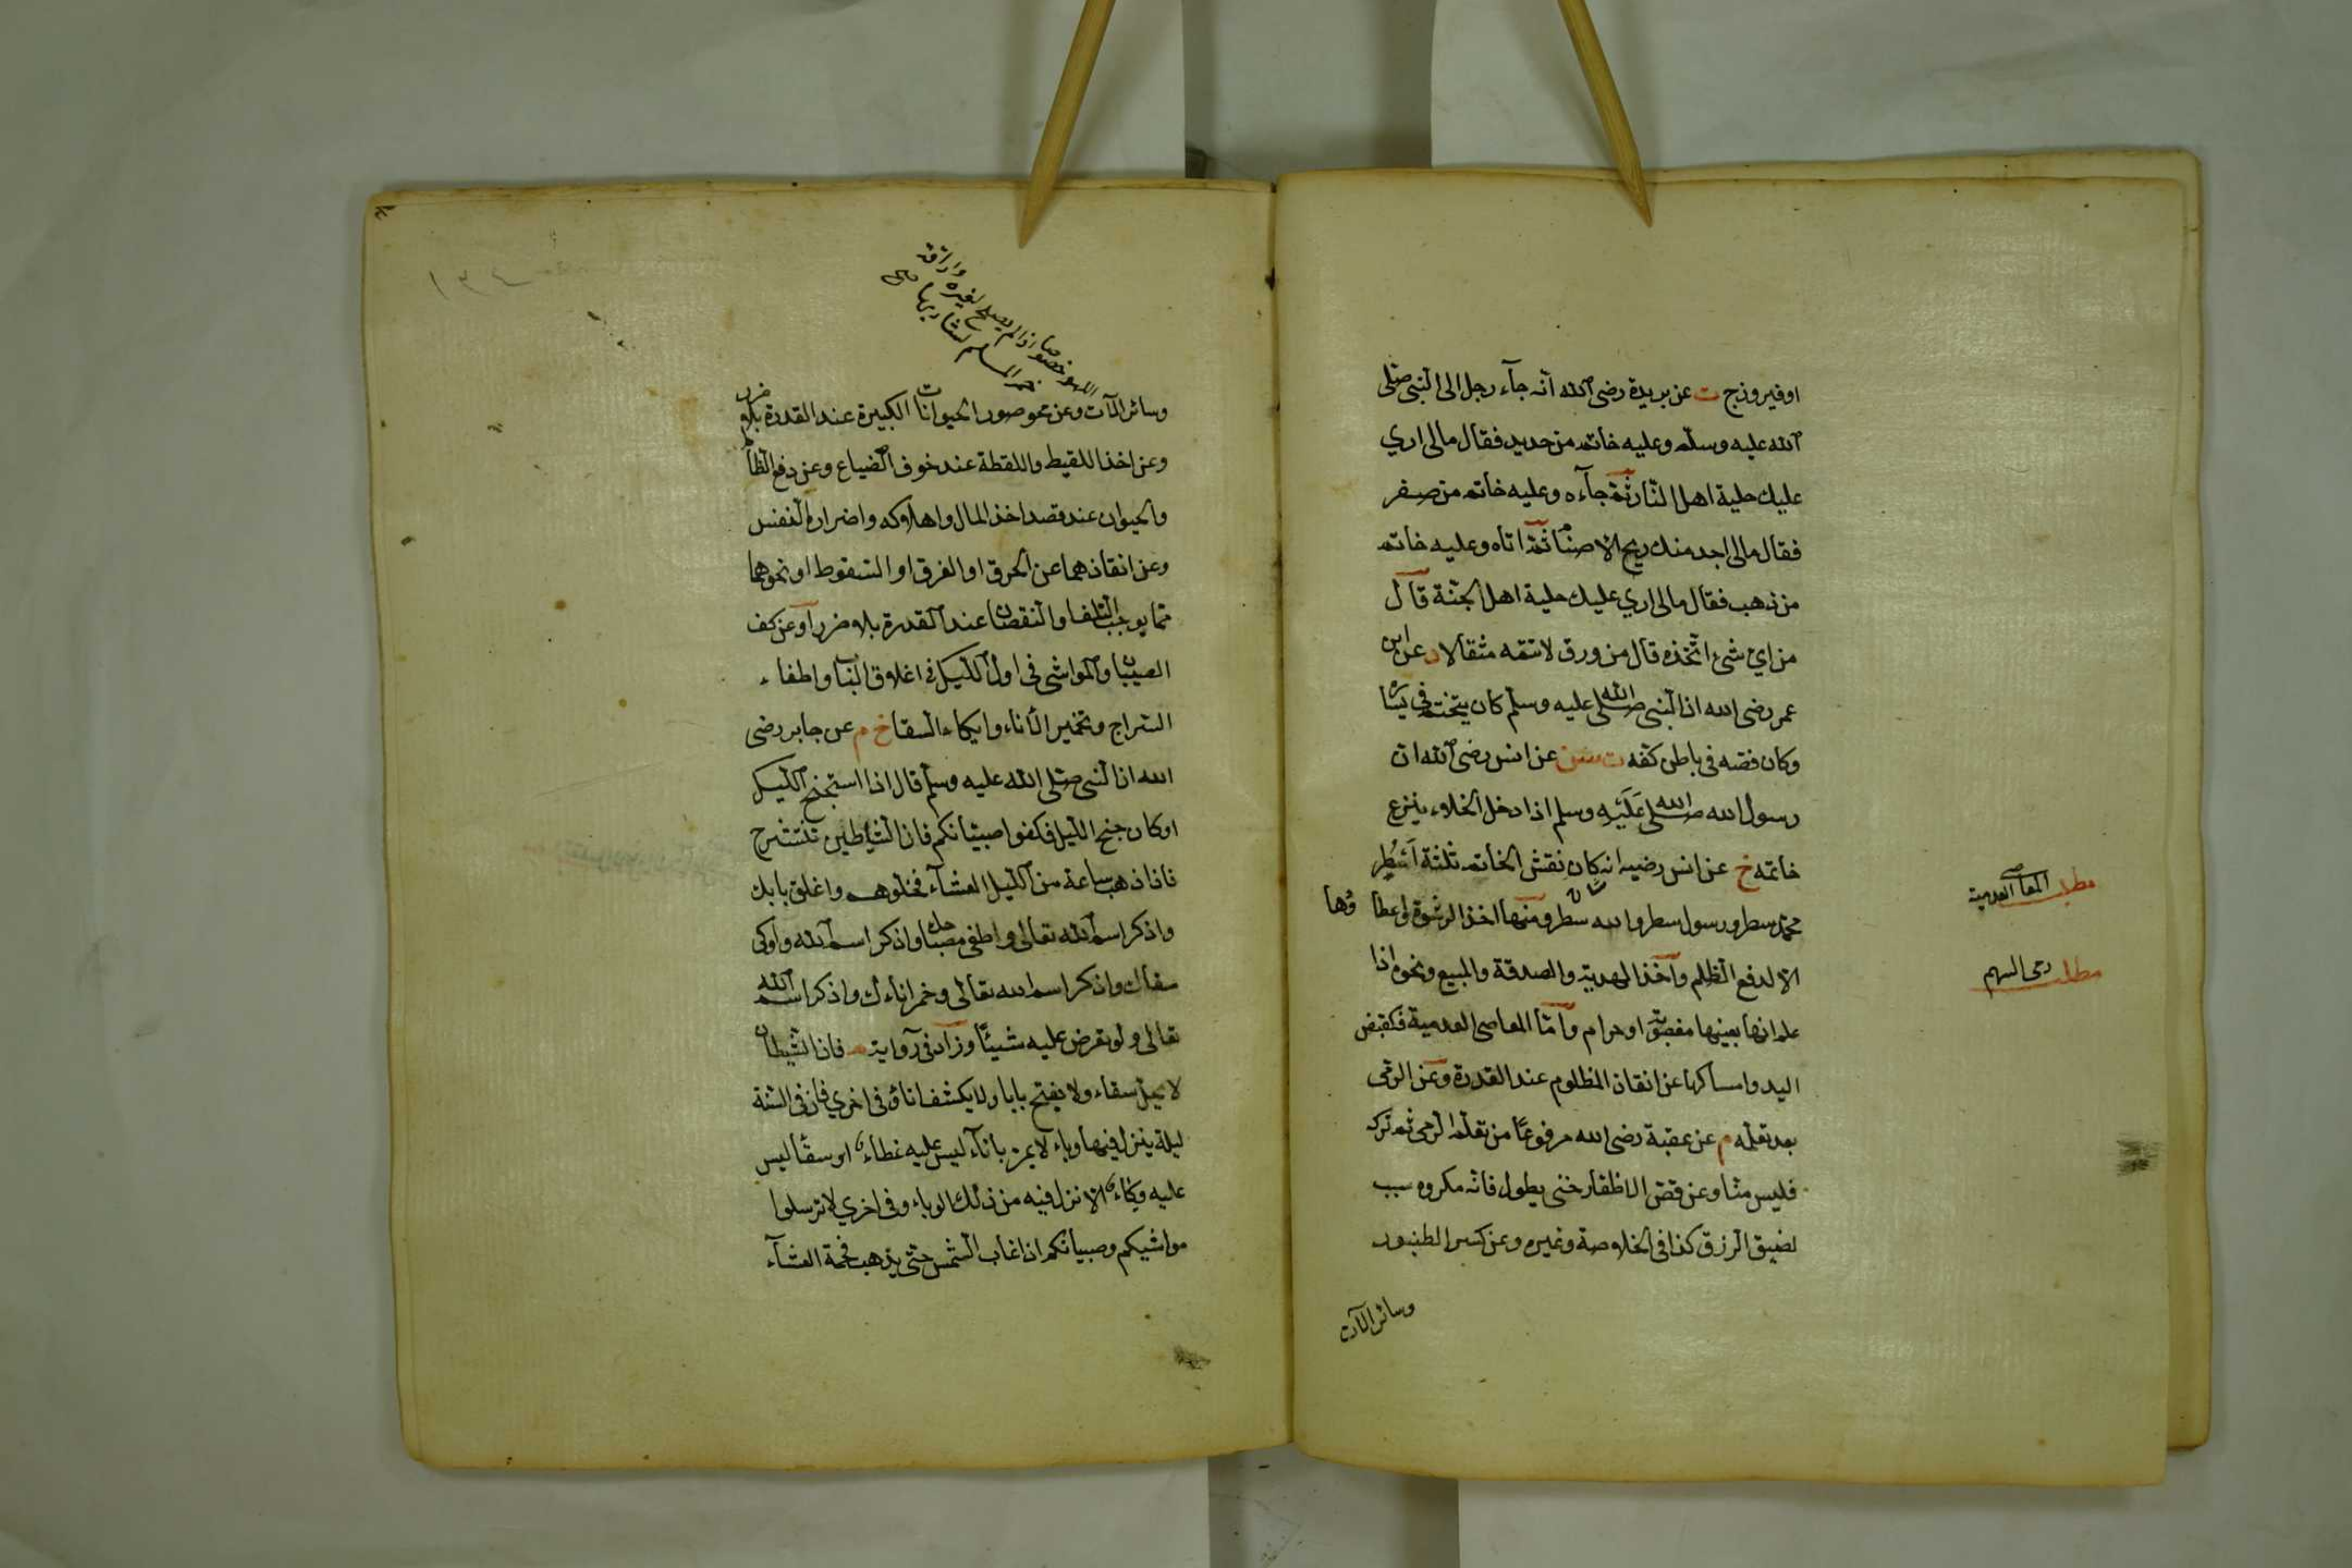 او فيروزج ت عن بريدة رضى الله انه جآء رجل الى النبى صلى
الله عليه وسلم وعليه خاتم من حديد فقال مالى ارى
عليك حلية اهل النار ثم جآءه وعليه خاتم من صفر
فقال مالى اجد منك ريح الاصنام ثم اتاه وعليه خاتم
من ذهب فقال مالى ارى عليك حلية اهل الجنة قال
من اى شئ اتخذه قال من ورق لا تتمه مثقالا د عن ابن
عمر رضى الله ان النبى صلى الله عليه وسلم كان يتختم فى يساره
وكان فصه فى باطن كفه ت سن عن انس رضى الله ان
رسول الله صلى الله عليه وسلم اذا دخل الخلاء ينزع
خاتمه خ عن انس رضيه انه كان نقش الخاتم ثلثة اسطر
محمد سطر ورسول سطر والله سطر ومنها اخذ الرشوة واعطاؤها
الا لدفع الظلم واخذ الهدية والصدقة والمبيع ونحوه اذا
علم انها بعينها مغصوبة او حرام واما المعاصى العدمية فكقبض
اليد وامساكها عن انقاذ المظلوم عند القدرة وعن الرمى
بعد تعلمه م عن عقبة رضى الله مرفوعا من تعلم الرمى ثم تركه
فليس منا وعن قص الاظفار حتى يطول فانه مكروه سبب
لضيق الرزق كذا فى الخلاصة وغيره وعن كسر الطنبور
وسائر الآت
مطلب المعاصى العدمية
مطلب رمى السهم
اللهو خصوصا اذا لم يصلح لغيره واراقة
خمر المسلم لشاربها صح
وسائر الآت وعن محو صور الحيوانات الكبيرة عند القدرة بلا ضرر
وعن اخذ اللقيط واللقطة عند خوف الضياع وعن دفع الظالم
والحيوان عند قصد اخذ المال واهلاكه واضرار النفس
وعن انقاذهما عن الحرق او الغرق او السقوط او نحوهما
مما يوجب التلف او النقصان عند القدرة بلا ضرر او عن كف
الصبيان والمواشى فى اول الليل فى اغلاق الباب واطفاء
السراج وتخمير الاناء وايكاء السقا خ م عن جابر رضى
الله ان النبى صلى الله عليه وسلم قال اذا استجنح الليل
او كان جنح الليل فكفوا صبيانكم فان الشياطين تنتشر ح
فاذا ذهب ساعة من الليل العشآء فخلوهم واغلق بابك
واذكر اسم الله تعالى واطفئ مصباحك واذكر اسم الله واوكى
سقاك واذكر اسم الله تعالى وخمر اناءك واذكر اسم الله
تعالى ولو تعرض عليه شيئا وزاد فى رواية م فان الشيطان
لا يحل سقاء ولا يفتح بابا ولا يكشف اناء وفى اخرى فان فى السنة
ليلة ينزل فيها وباء لا يمر بانآء ليس عليه غطاء او سقا ليس
عليه وكاء الا نزل فيه من ذلك الوباء وفى اخرى لا ترسلوا
مواشيكم وصبيانكم اذا غاب الشمس حتى يذهب فحمة العشآء
١٣٤